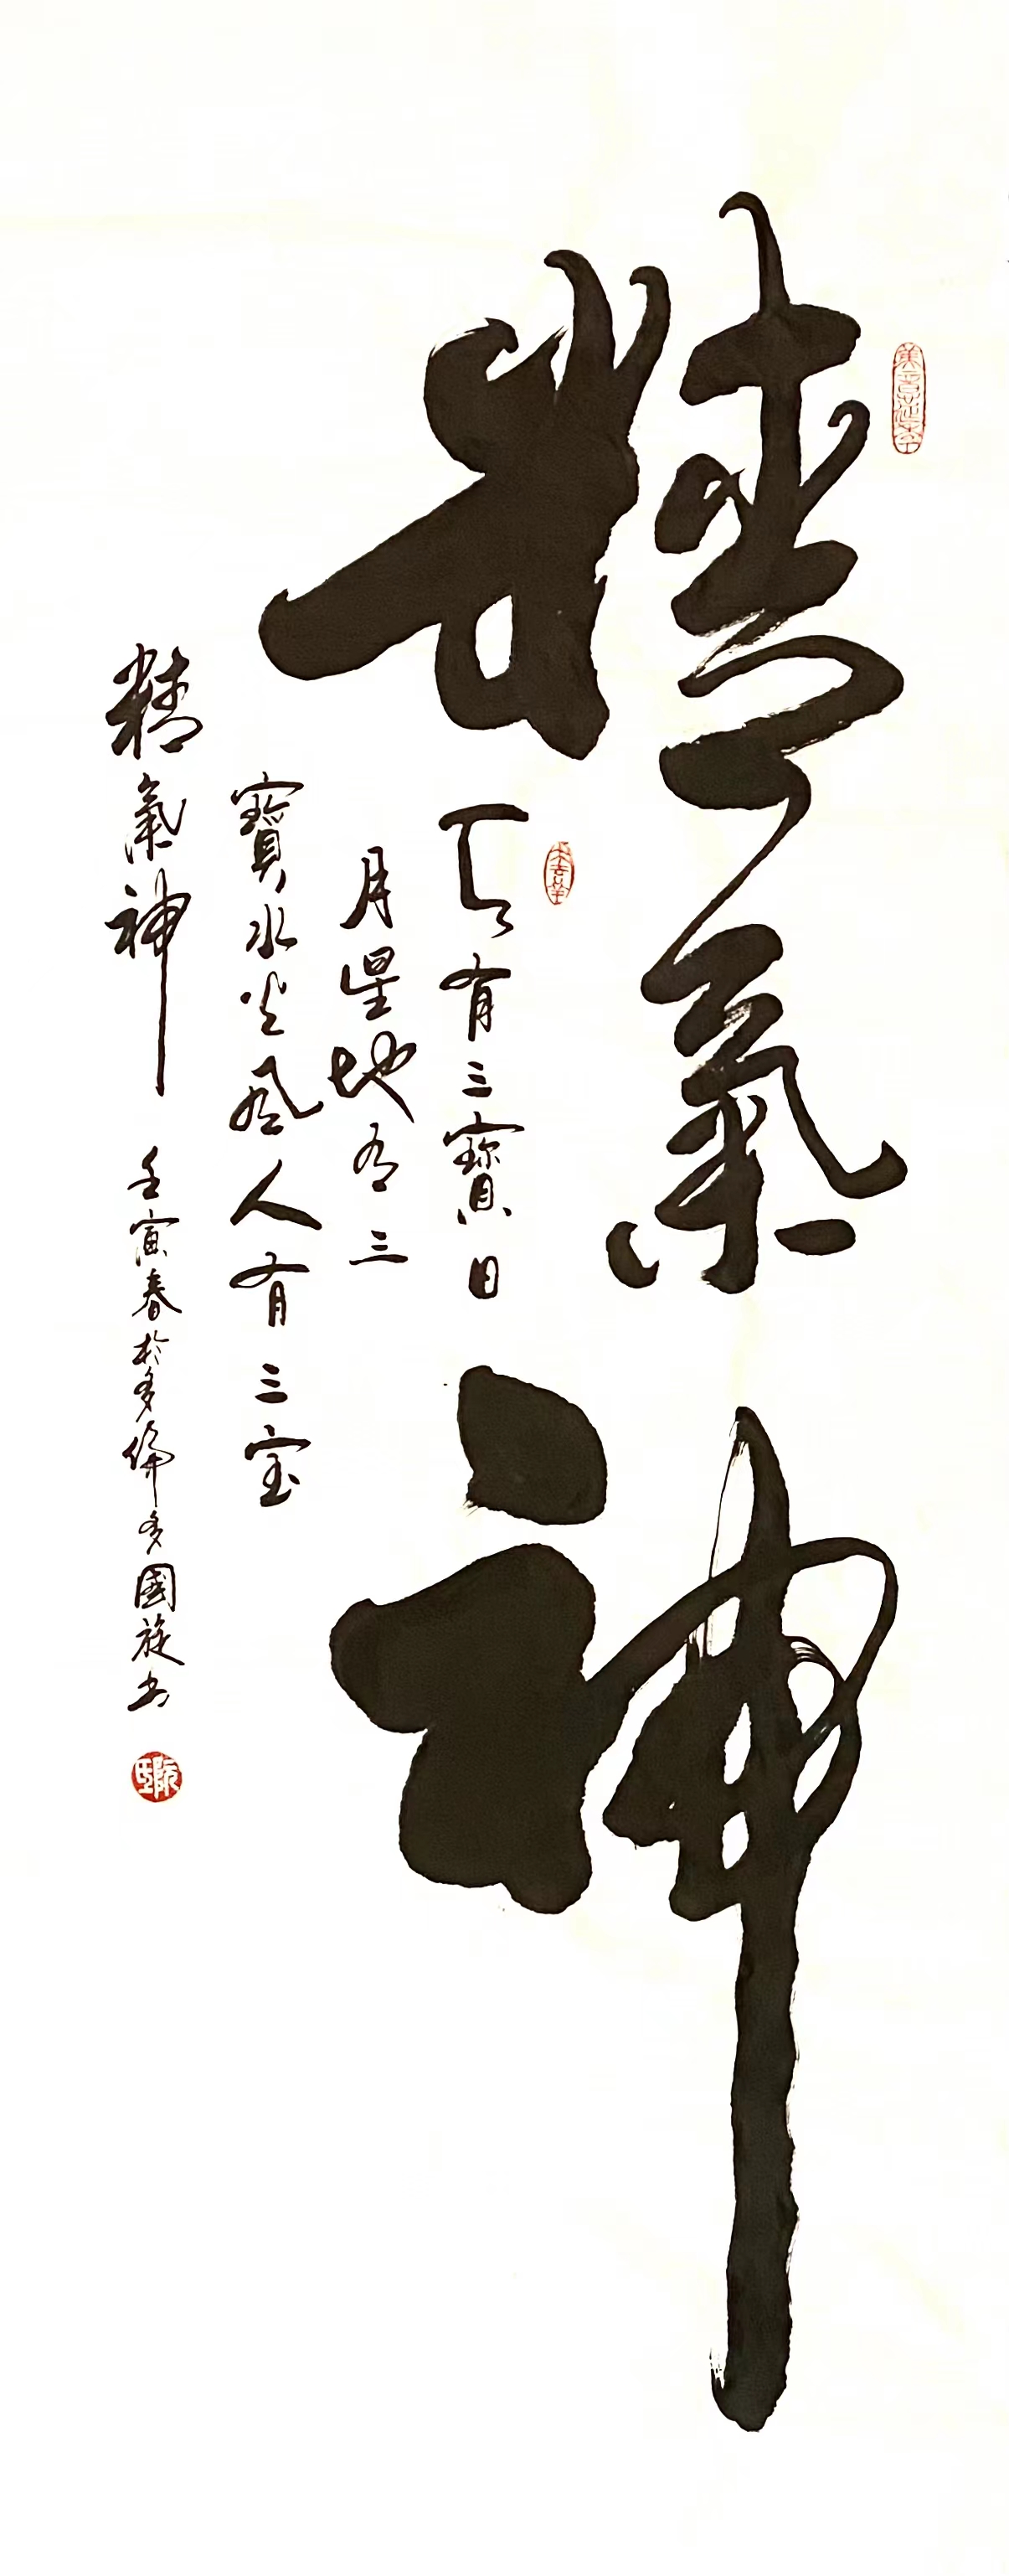 精氣神
天有三寶日
月星地有三
寶水火風人有三宝
精氣神
壬寅春於多倫多國旋书